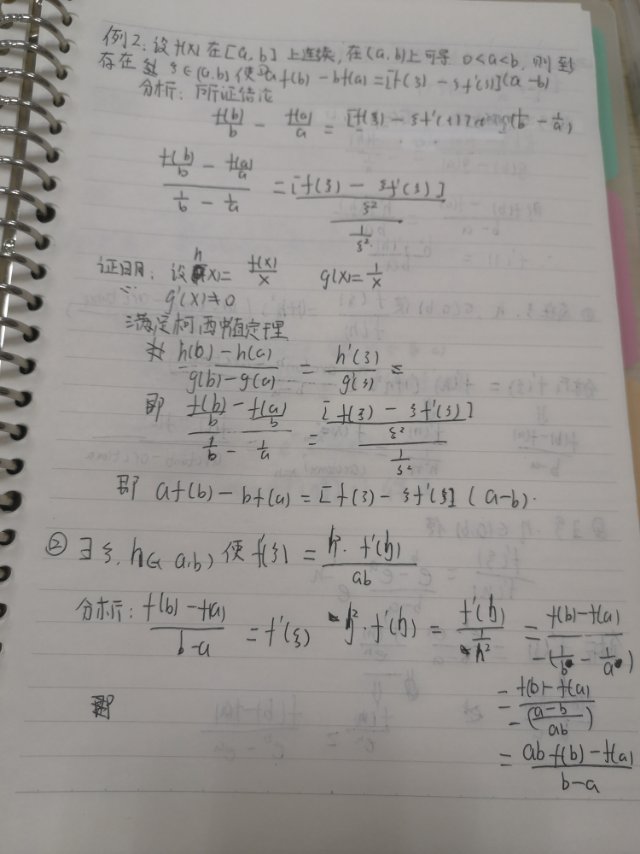 例2.设f(x)在[a,b]上连续,在(a,b)上可导 0<a<b,则
存在 ξ∈(a,b)使 af(b)-bf(a)=[f(ξ)-ξf'(ξ)](a-b)
分析:所证结论
f(b)/b - f(a)/a = [f(ξ)-ξf'(ξ)] (1/b - 1/a)
(f(b)/b - f(a)/a)/(1/b - 1/a) = ([f(ξ)-ξf'(ξ)]/ξ²)/(1/ξ²)
证明:设h(x)=f(x)/x g(x)=1/x
∵g'(x)≠0
满足柯西中值定理
(h(b)-h(a))/(g(b)-g(a)) = h'(ξ)/g(ξ) =
即 (f(b)/b - f(a)/b)/(1/b - 1/a) = ([f(ξ)-ξf'(ξ)]/ξ²)/(1/ξ²)
即 af(b)-bf(a)=[f(ξ)-ξf'(ξ)](a-b).
② ∃ξ,η∈(a,b)使f(ξ)=η²·f'(η)/ab
分析: (f(b)-f(a))/(b-a) = f'(ξ) η²·f'(η) = f'(η)/(1/η²) = (f(b)-f(a))/(-(1/b - 1/a))
即 = (f(b)-f(a))/(-((a-b)/ab))
= (ab f(b)-f(a))/(b-a)